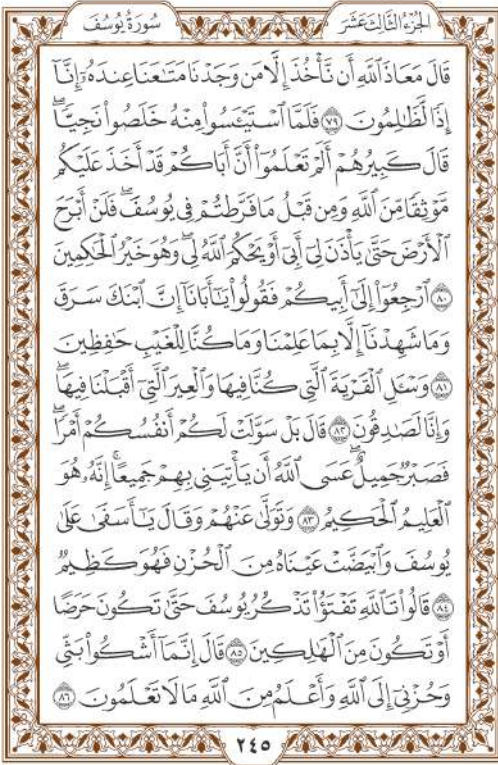 الجزء الثالث عشر
سورة يوسف
قَالَ مَعَاذَ ٱللَّهِ أَن نَّأۡخُذَ إِلَّا مَن وَجَدۡنَا مَتَٰعَنَا عِندَهُۥٓ إِنَّآ
إِذٗا لَّظَٰلِمُونَ ٧٩ فَلَمَّا ٱسۡتَيۡـَٔسُواْ مِنۡهُ خَلَصُواْ نَجِيّٗاۖ
قَالَ كَبِيرُهُمۡ أَلَمۡ تَعۡلَمُوٓاْ أَنَّ أَبَاكُمۡ قَدۡ أَخَذَ عَلَيۡكُم
مَّوۡثِقٗا مِّنَ ٱللَّهِ وَمِن قَبۡلُ مَا فَرَّطتُمۡ فِي يُوسُفَۖ فَلَنۡ أَبۡرَحَ
ٱلۡأَرۡضَ حَتَّىٰ يَأۡذَنَ لِيٓ أَبِيٓ أَوۡ يَحۡكُمَ ٱللَّهُ لِيۖ وَهُوَ خَيۡرُ ٱلۡحَٰكِمِينَ
٨٠ ٱرۡجِعُوٓاْ إِلَىٰٓ أَبِيكُمۡ فَقُولُواْ يَٰٓأَبَانَآ إِنَّ ٱبۡنَكَ سَرَقَ
وَمَا شَهِدۡنَآ إِلَّا بِمَا عَلِمۡنَا وَمَا كُنَّا لِلۡغَيۡبِ حَٰفِظِينَ
٨١ وَسۡـَٔلِ ٱلۡقَرۡيَةَ ٱلَّتِي كُنَّا فِيهَا وَٱلۡعِيرَ ٱلَّتِيٓ أَقۡبَلۡنَا فِيهَاۖ
وَإِنَّا لَصَٰدِقُونَ ٨٢ قَالَ بَلۡ سَوَّلَتۡ لَكُمۡ أَنفُسُكُمۡ أَمۡرٗاۖ
فَصَبۡرٞ جَمِيلٌۖ عَسَى ٱللَّهُ أَن يَأۡتِيَنِي بِهِمۡ جَمِيعًاۚ إِنَّهُۥ هُوَ
ٱلۡعَلِيمُ ٱلۡحَكِيمُ ٨٣ وَتَوَلَّىٰ عَنۡهُمۡ وَقَالَ يَٰٓأَسَفَىٰ عَلَىٰ
يُوسُفَ وَٱبۡيَضَّتۡ عَيۡنَاهُ مِنَ ٱلۡحُزۡنِ فَهُوَ كَظِيمٞ
٨٤ قَالُواْ تَٱللَّهِ تَفۡتَؤُاْ تَذۡكُرُ يُوسُفَ حَتَّىٰ تَكُونَ حَرَضًا
أَوۡ تَكُونَ مِنَ ٱلۡهَٰلِكِينَ ٨٥ قَالَ إِنَّمَآ أَشۡكُواْ بَثِّي
وَحُزۡنِيٓ إِلَى ٱللَّهِ وَأَعۡلَمُ مِنَ ٱللَّهِ مَا لَا تَعۡلَمُونَ ٨٦
٢٤٥